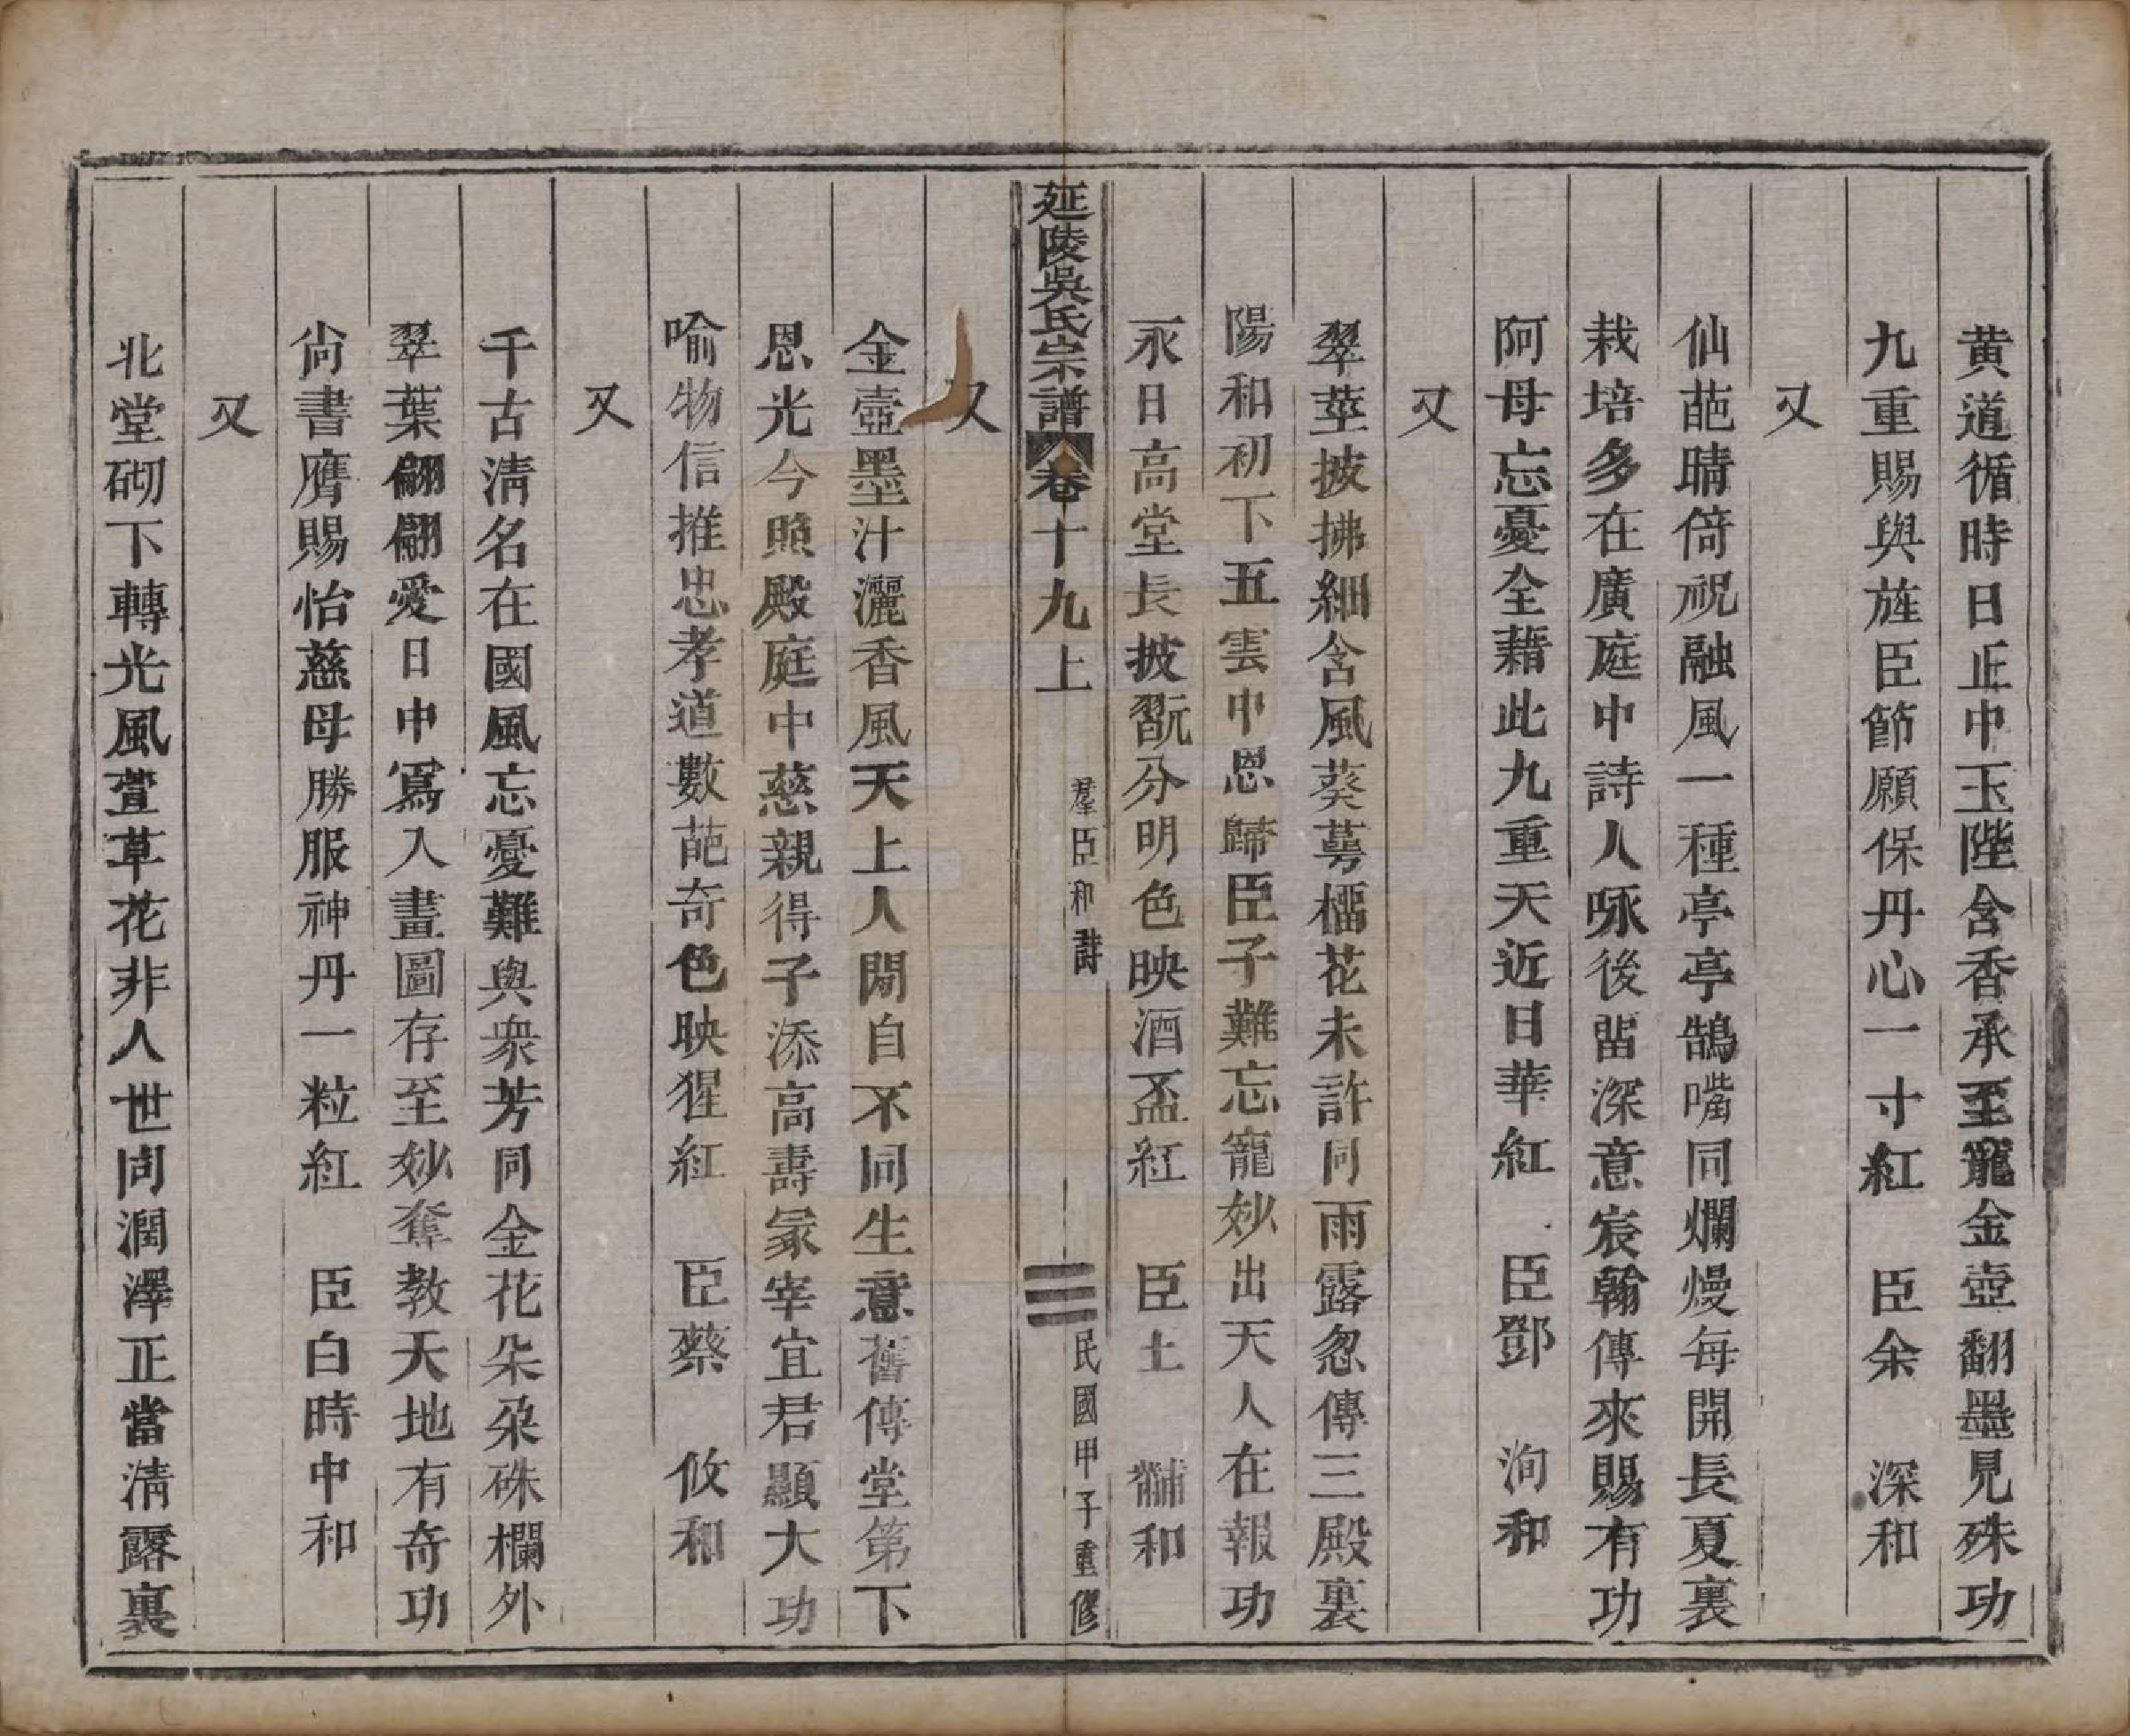 黃道循時日正中玉陛含香承至寵金壺翻墨見殊功
九重賜與旌臣節願保丹心一寸紅　臣余　深和
又
仙葩晴倚祝融風一種亭亭鵠嘴同爛熳每開長夏裏
栽培多在廣庭中詩人咏後留深意宸翰傳來賜有功
阿母忘憂全藉此九重天近日華紅　臣鄧　洵和
又
翠莖披拂細含風葵萼榴花未許同雨露忽傳三殿裏
陽和初下五雲中恩歸臣子難忘寵妙出天人在報功
永日高堂長披翫分明色映酒盃紅　臣土　黼和
延陵吳氏宗譜
卷十九上
羣臣和詩
三
民國甲子重修
又
金壺墨汁灑香風天上人間自不同生意舊傳堂第下
恩光今照殿庭中慈親得子添高壽冢宰宜君顯大功
喻物信推忠孝道數葩奇色映猩紅　臣蔡　攸和
又
千古清名在國風忘憂難與衆芳同金花朵朵硃欄外
翠葉翩翩愛日中寫入畫圖存至妙奪教天地有奇功
尚書膺賜怡慈母勝服神丹一粒紅　臣白時中和
又
北堂砌下轉光風萱草花非人世同潤澤正當清露裏